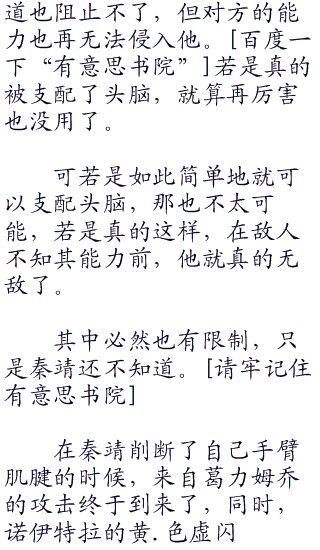 道也阻止不了，但对方的能
力也再无法侵入他。[百度一
下“有意思书院”]若是真的
被支配了头脑，就算再厉害
也没用了。
可若是如此简单地就可
以支配头脑，那也不太可
能，若是真的这样，在敌人
不知其能力前，他就真的无
敌了。
其中必然也有限制，只
是秦靖还不知道。[请牢记住
有意思书院]
在秦靖削断了自己手臂
肌腱的时候，来自葛力姆乔
的攻击终于到来了，同时，
诺伊特拉的黄.色虚闪